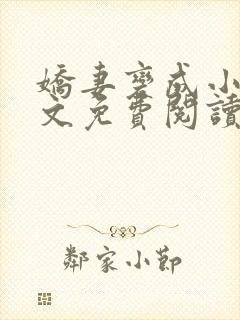 嬌妻變成小
文免費閱讀
鄰家小節